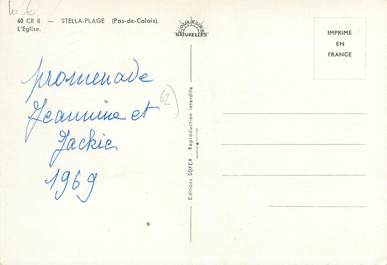 60 CR 8 — STELLA-PLAGE (Pas-de-Calais).
L'Église.
NATURELLES
IMPRIMÉ
EN
FRANCE
promenade
Jeannine et
Jackie
1969
62
Editions SOFER - Reproduction interdite